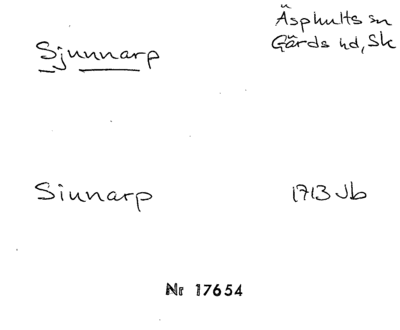 Sjunnarp
Äsphults sn
Gärds hd, Sk
Sinnarp
1713 Jb
Nr 17654